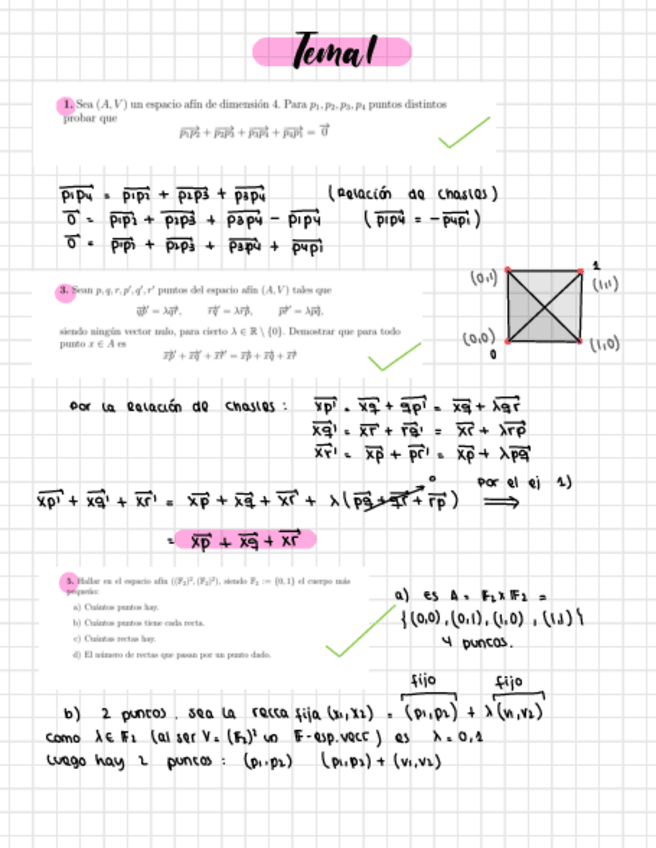 Tema 1
1. Sea (A, V) un espacio afín de dimensión 4. Para p₁, p₂, p₃, p₄ puntos distintos
probar que
p₁p₂ + p₂p₃ + p₃p₄ + p₄p₁ = 0
p₁p₄ = p₁p₂ + p₂p₃ + p₃p₄ (Relación de Chasles)
0 = p₁p₂ + p₂p₃ + p₃p₄ - p₁p₄ (p₁p₄ = -p₄p₁)
0 = p₁p₂ + p₂p₃ + p₃p₄ + p₄p₁
3. Sean p, q, r, p', q', r' puntos del espacio afín (A, V) tales que
qp' = λqr, rq' = λrp, pr' = λpq,
siendo ningún vector nulo, para cierto λ ∈ ℝ \ {0}. Demostrar que para todo
punto x ∈ A es
xp' + xq' + xr' = xp + xq + xr
(0,1) 1 (1,1)
(0,0) 0 (1,0)
Por la Relación de Chasles: xp' = xq + qp' = xq + λqr
xq' = xr + rq' = xr + λrp
xr' = xp + pr' = xp + λpq
xp' + xq' + xr' = xp + xq + xr + λ(pq + qr + rp) 0 Por el ej 1) ⟹
= xp + xq + xr
5. Hallar en el espacio afín ((𝔽₂)², (𝔽₂)²), siendo 𝔽₂ := {0, 1} el cuerpo más
pequeño:
a) Cuántos puntos hay.
b) Cuántos puntos tiene cada recta.
c) Cuántas rectas hay.
d) El número de rectas que pasan por un punto dado.
a) es A = F₂ x F₂ =
{(0,0), (0,1), (1,0), (1,1)}
4 puntos.
fijo fijo
b) 2 puntos. Sea la recta fija (x₁,x₂) = (p₁,p₂) + λ(v₁,v₂)
como λ∈F₂ (al ser V=(F₂)² un F-esp.vect) es λ=0,1
Luego hay 2 puntos: (p₁,p₂) (p₁,p₂) + (v₁,v₂)